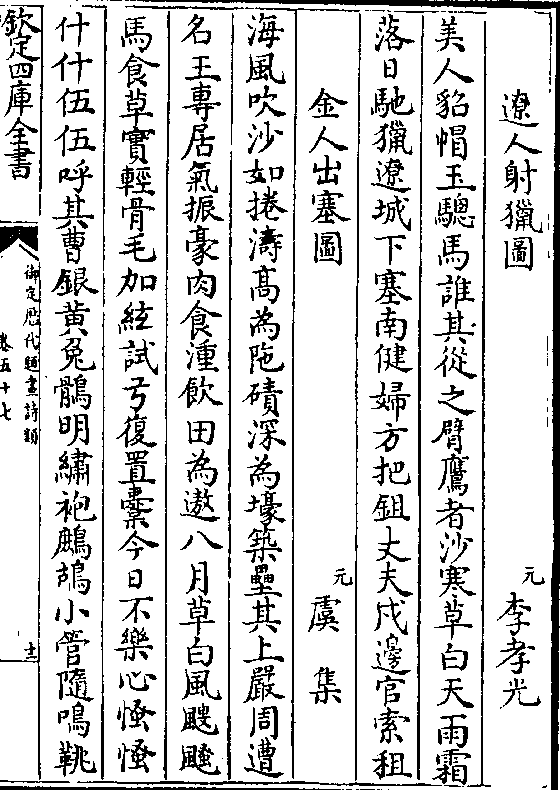 遼人射獵圖　元　李孝光
美人貂帽玉驄馬誰其從之臂鷹者沙寒草白天雨霜
落日馳獵遼城下塞南健婦方把鉏丈夫戍邊官索租
金人出塞圖　元　虞　集
海風吹沙如捲濤高為陁磧深為壕築壘其上嚴周遭
名王專居氣振豪肉食湩飲田為遨八月草白風颼飀
馬食草實輕骨毛加絃試弓復置櫜今日不樂心慅慅
什什伍伍呼其曹銀黄兔鶻明繡袍鷓鴣小管隨鳴鞉
欽定四庫全書
御定歷代題畫詩類
卷五十七
十三